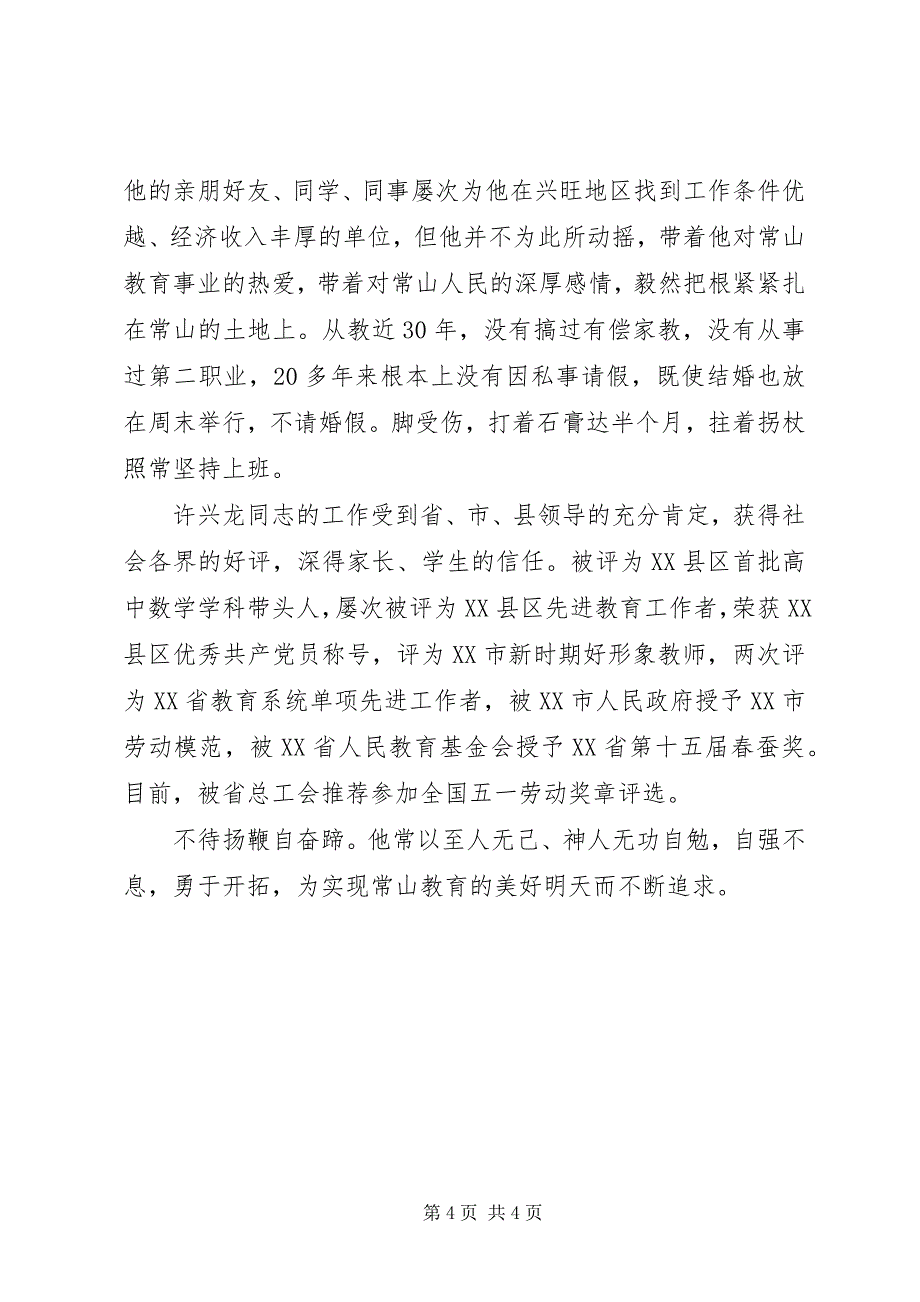 他的亲朋好友、同学、同事屡次为他在兴旺地区找到工作条件优
越、经济收入丰厚的单位，但他并不为此所动摇，带着他对常山
教育事业的热爱，带着对常山人民的深厚感情，毅然把根紧紧扎
在常山的土地上。从教近 30 年，没有搞过有偿家教，没有从事
过第二职业，20 多年来根本上没有因私事请假，既使结婚也放
在周末举行，不请婚假。脚受伤，打着石膏达半个月，拄着拐杖
照常坚持上班。
许兴龙同志的工作受到省、市、县领导的充分肯定，获得社
会各界的好评，深得家长、学生的信任。被评为 XX 县区首批高
中数学学科带头人，屡次被评为 XX 县区先进教育工作者，荣获 XX
县区优秀共产党员称号，评为 XX 市新时期好形象教师，两次评
为 XX 省教育系统单项先进工作者，被 XX 市人民政府授予 XX 市
劳动模范，被 XX 省人民教育基金会授予 XX 省第十五届春蚕奖。
目前，被省总工会推荐参加全国五一劳动奖章评选。
不待扬鞭自奋蹄。他常以至人无己、神人无功自勉，自强不
息，勇于开拓，为实现常山教育的美好明天而不断追求。
第 4 页 共 4 页